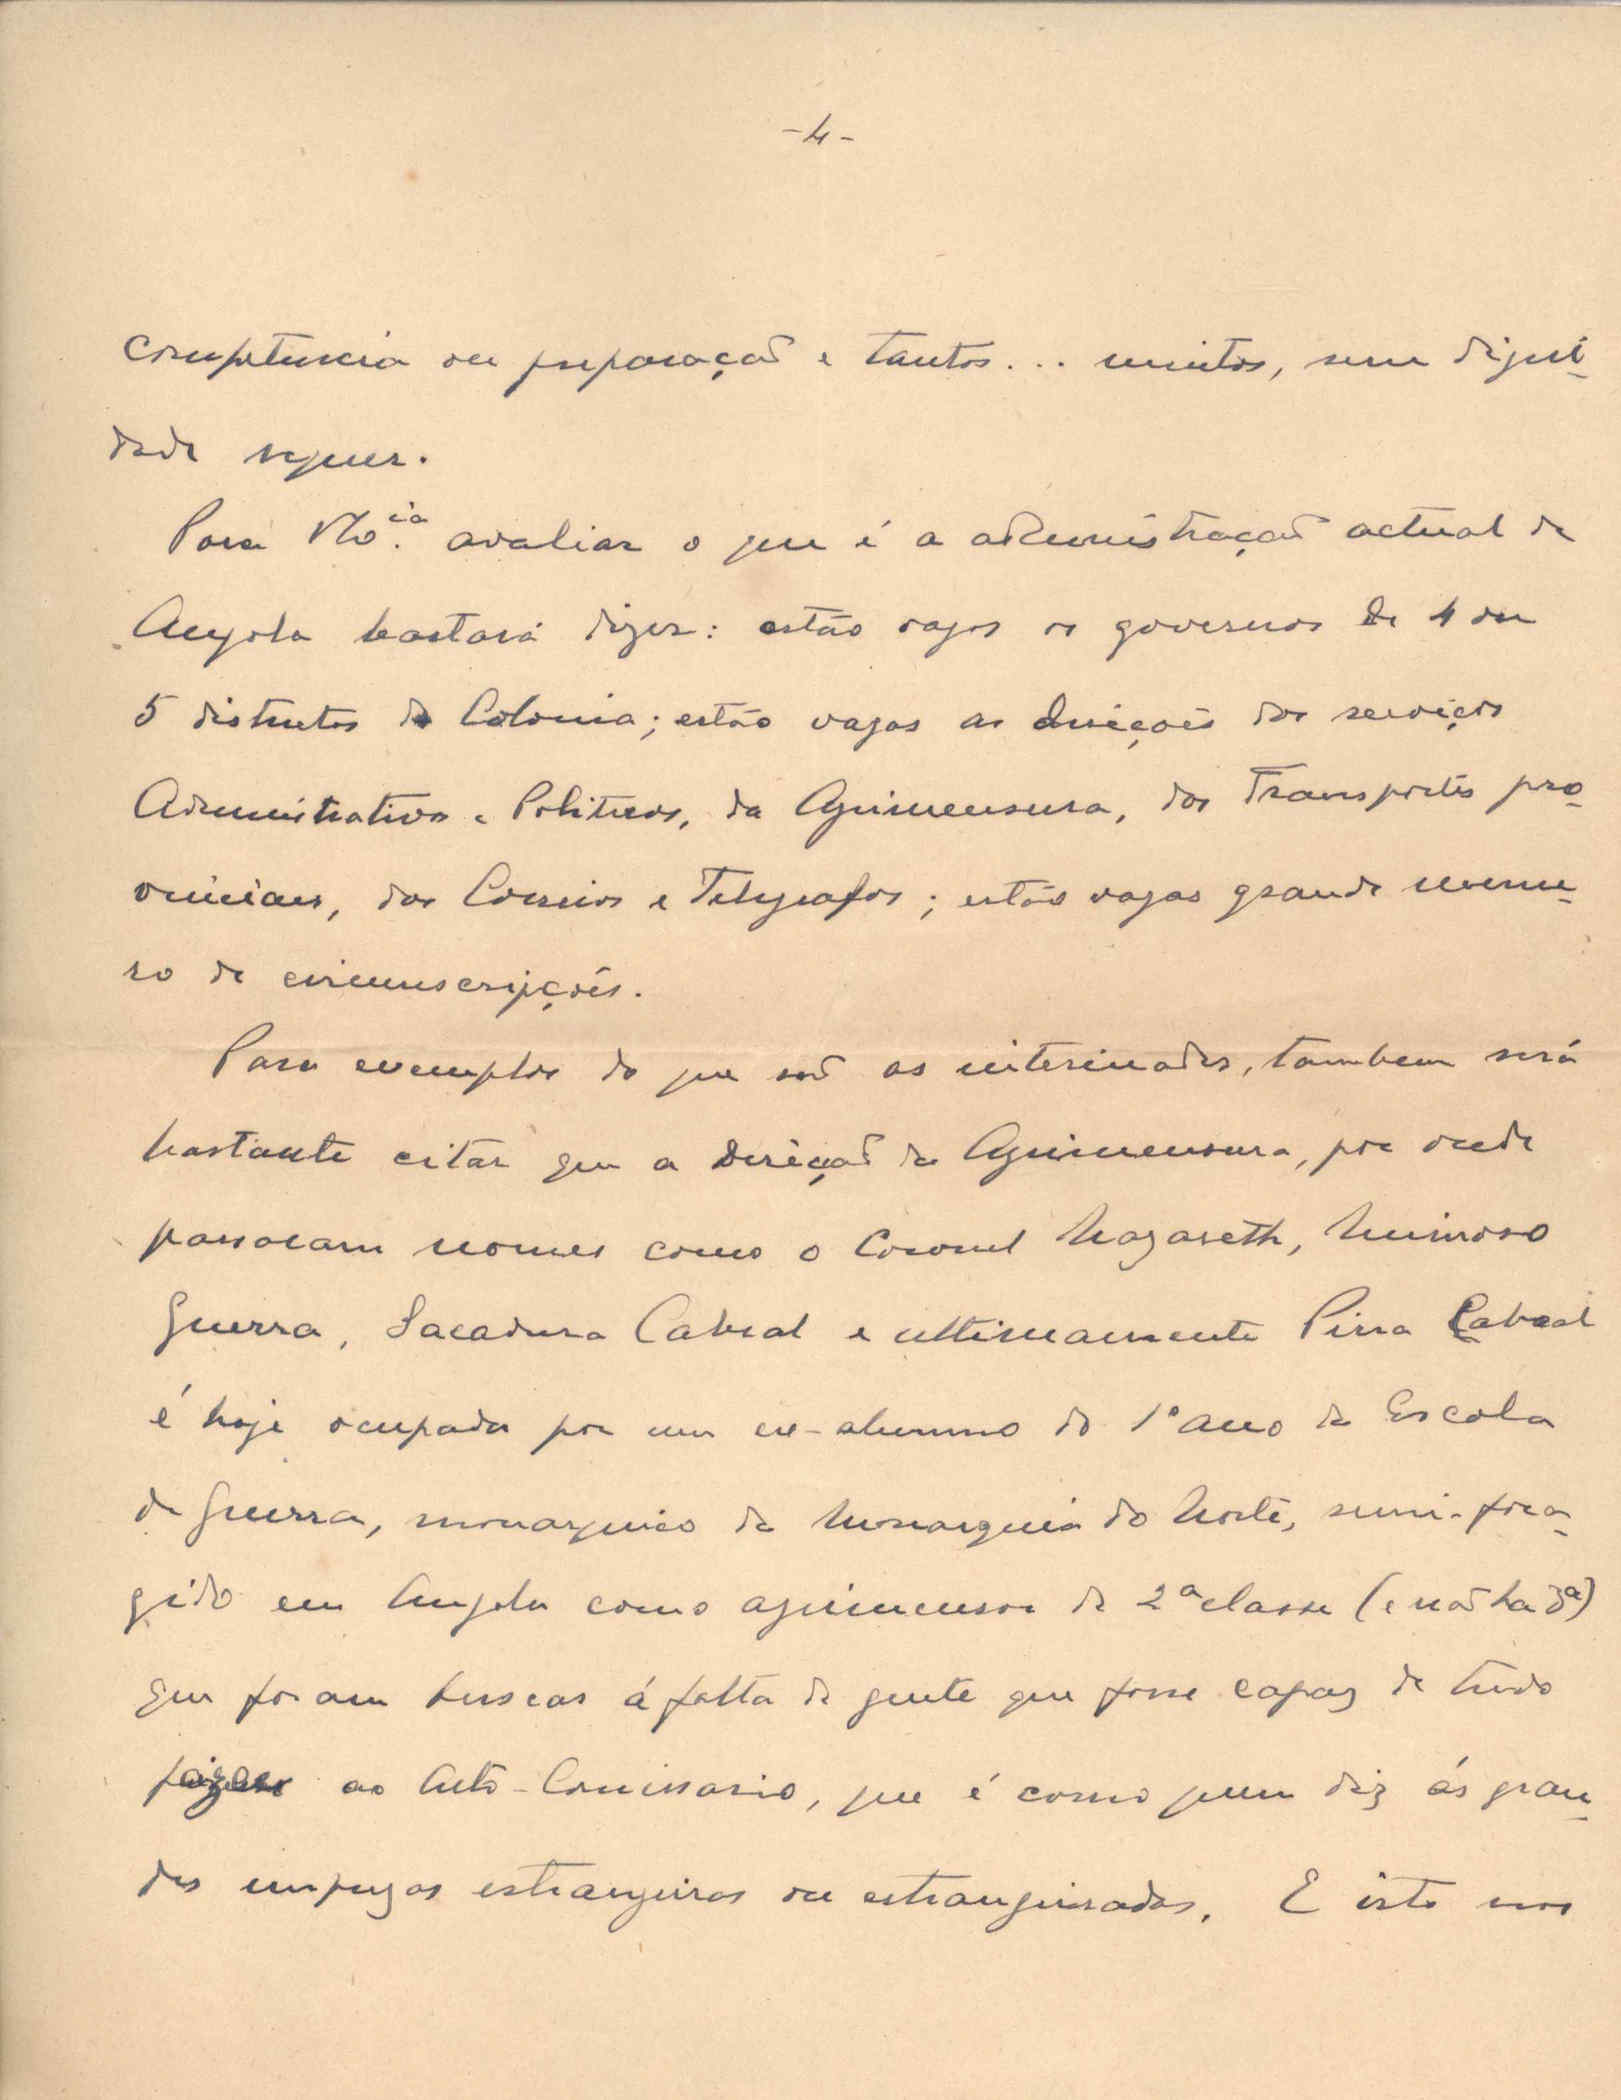 -4-
competencia ou preparação e tantos... muitos, sem digni-
dade sequer.
Para V. Ex.cia avaliar o que é a administração actual de
Angola bastará dizer: estão vagos os governos de 4 ou
5 distritos da Colonia; estão vagas as direções dos serviços
Administrativos e Politicos, da Agrimensura, dos Transportes pro-
vinciais, dos Correios e Telegrafos; estão vagas grande nume-
ro de circunscrições.
Para exemplos do que são as interinidades, tambem será
bastante citar que a direcção da Agrimensura, por onde
passaram nomes como o Coronel Nazareth, Mimoso
Guerra, Sacadura Cabral e ultimamente Pissa Cabral
é hoje ocupada por um ex-alumno do 1º ano da Escola
de Guerra, monarquico da Monarquia do Norte,
gido em Angola como agrimensor de 2ª classe (e não ha 3ª)
que foram buscar á falta de gente que fosse capaz de tudo
fazer ao Alto-Comissario, que é como quem diz ás gran-
des emprezas estrangeiras ou estrangeiradas. E isto nos